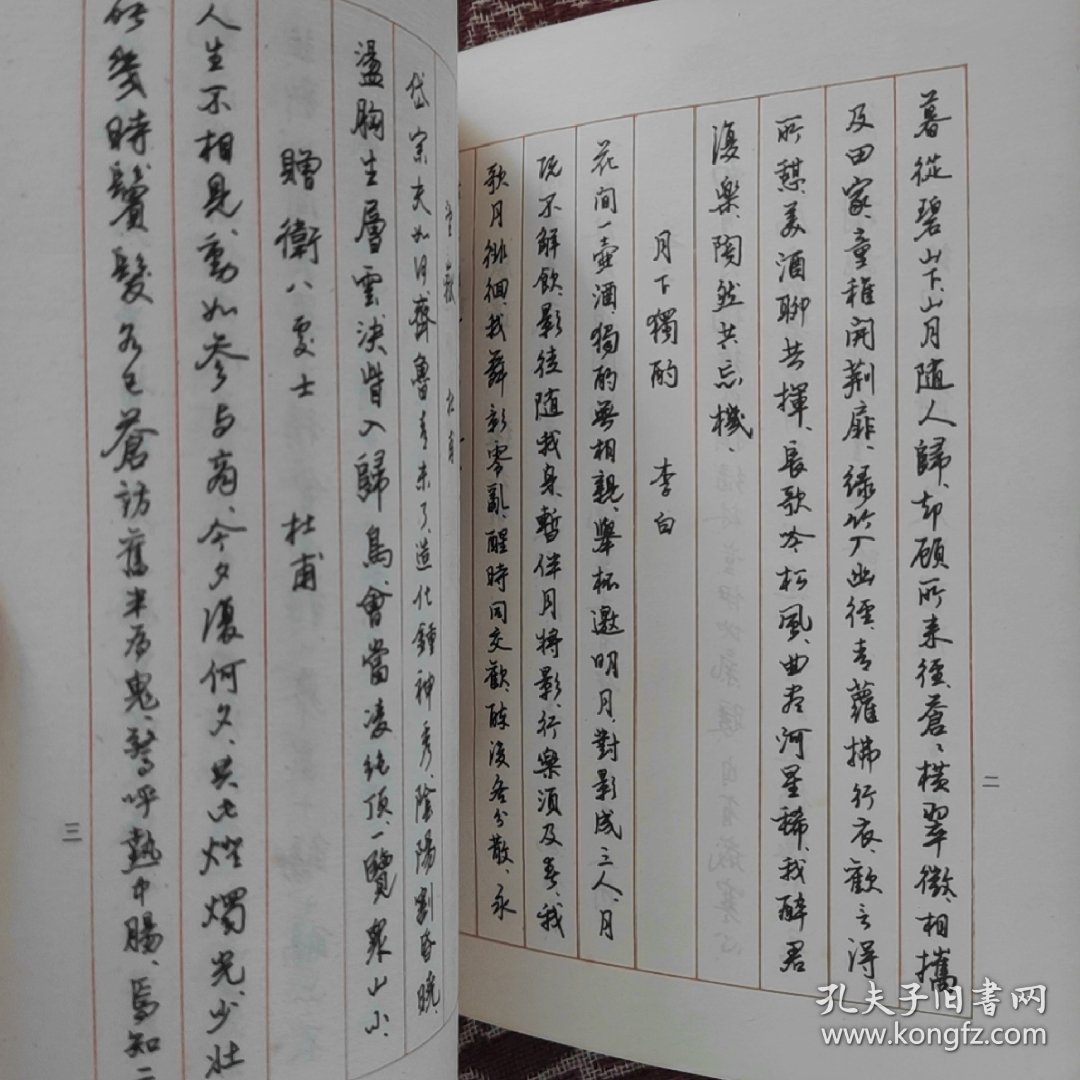 暮從碧山下、山月隨人歸、却顧所来徑、蒼、橫翠微、相攜、
及田家、童稚開荆扉、緑竹入幽徑、青蘿拂行衣、歡言得
所憇、美酒聊共揮、長歌吟松風、曲尽河星稀、我醉君
復楽、陶然共忘機、
月下獨酌 李白
花间一壺酒、獨酌無相親、舉杯邀明月、對影成三人、月
既不解飲、影徒隨我身、暫伴月將影、行樂須及春、我
歌月徘徊、我舞影零亂、醒時同交歡、醉後各分散、永
二
望嶽 杜甫
岱宗夫如何齊魯青未了、造化鍾神秀、陰陽割昏曉、
盪胸生層雲、决眥入歸鳥、會當凌絶頂、一覽衆山小、
贈衛八處士 杜甫
人生不相見、動如参与商、今夕復何夕、共此燈燭光、少壯
能幾時、鬢髮各已蒼、訪舊半為鬼、驚呼熱中腸、焉知二
三
孔夫子旧书网
www.kongfz.com